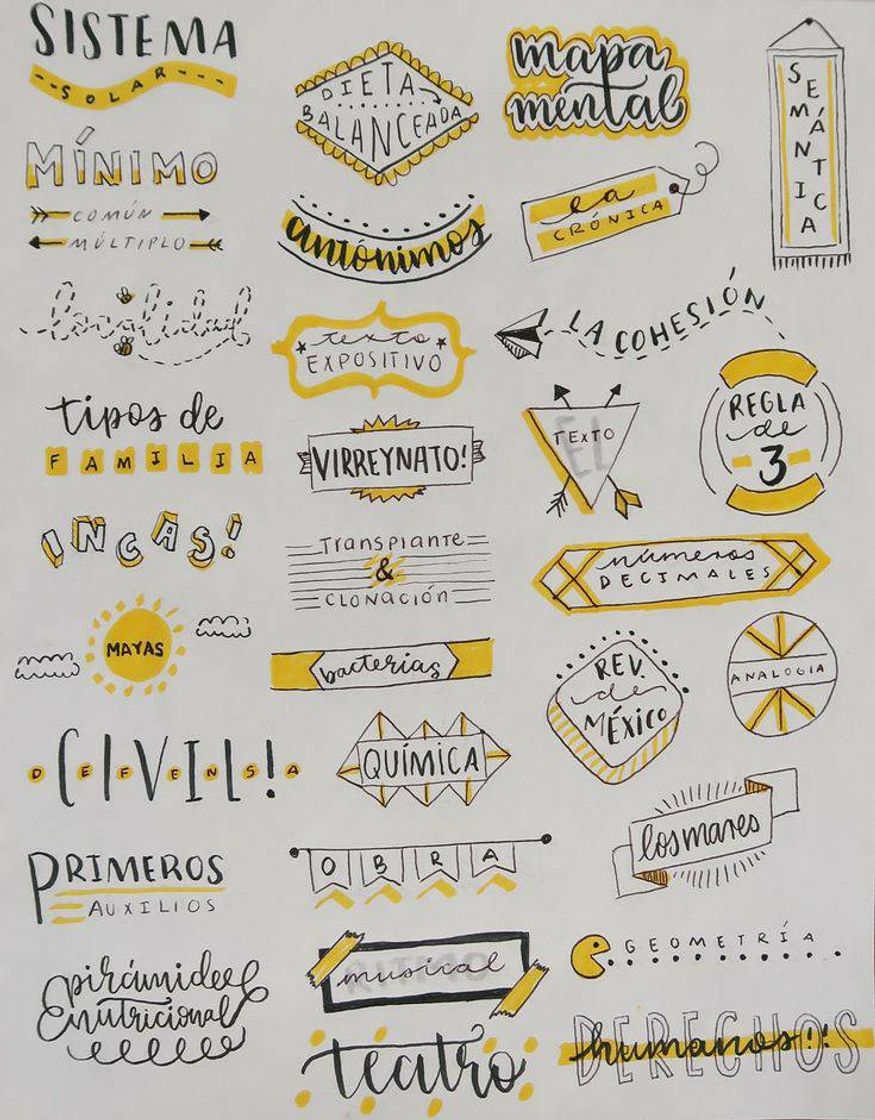 SISTEMA
SOLAR
MÍNIMO
COMÚN
MÚLTIPLO
tipos de
FAMILIA
INCAS!
MAYAS
CIVIL!
DEFENSA
PRIMEROS
AUXILIOS
pirámide
nutricional
DIETA
BALANCEADA
antónimos
texto
EXPOSITIVO
VIRREYNATO!
Transplante
&
CLONACIÓN
bacterias
QUÍMICA
OBRA
RITMO
musical
teatro
mapa
mental
la
CRÓNICA
SEMÁNTICA
LA COHESIÓN
EL
TEXTO
REGLA
de
3
números
DECIMALES
REV.
de
MÉXICO
ANALOGIA
los mares
GEOMETRÍA
DERECHOS
humanos!!